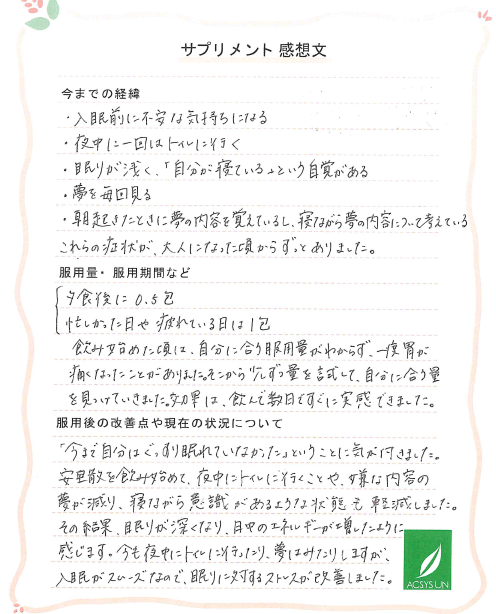 サプリメント 感想文
今までの経緯
・入眠前に不安な気持ちになる
・夜中に一回はトイレに行く
・眠りが浅く、「自分が寝ている」という自覚がある
・夢を毎回見る
・朝起きたときに夢の内容を覚えているし、寝ながら夢の内容について考えている
これらの症状が、大人になった頃からずっとありました。
服用量・服用期間など
夕食後に 0.5包
忙しかった日や疲れている日は1包
飲み始めた頃は、自分に合う服用量がわからず、一度胃が
痛くなったことがありました。そこから少しずつ量を試して、自分に合う量
を見つけていきました。効果は、飲んで数日ですぐに実感できました。
服用後の改善点や現在の状況について
「今まで自分はぐっすり眠れていなかった」ということに気が付きました。
安里散を飲み始めて、夜中にトイレに行くことや、嫌な内容の
夢が減り、寝ながら意識があるような状態も軽減しました。
その結果、眠りが深くなり、日中のエネルギーが増したように
感じます。今も夜中にトイレに行ったり、夢はみたりしますが、
入眠がスムーズなので、眠りに対するストレスが改善しました。
ACSYS UN